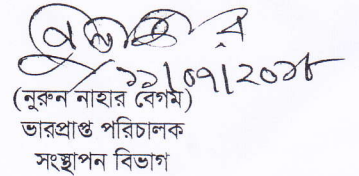 ১১/০৭/২০১৮
(নুরুন নাহার বেগম)
ভারপ্রাপ্ত পরিচালক
সংস্থাপন বিভাগ